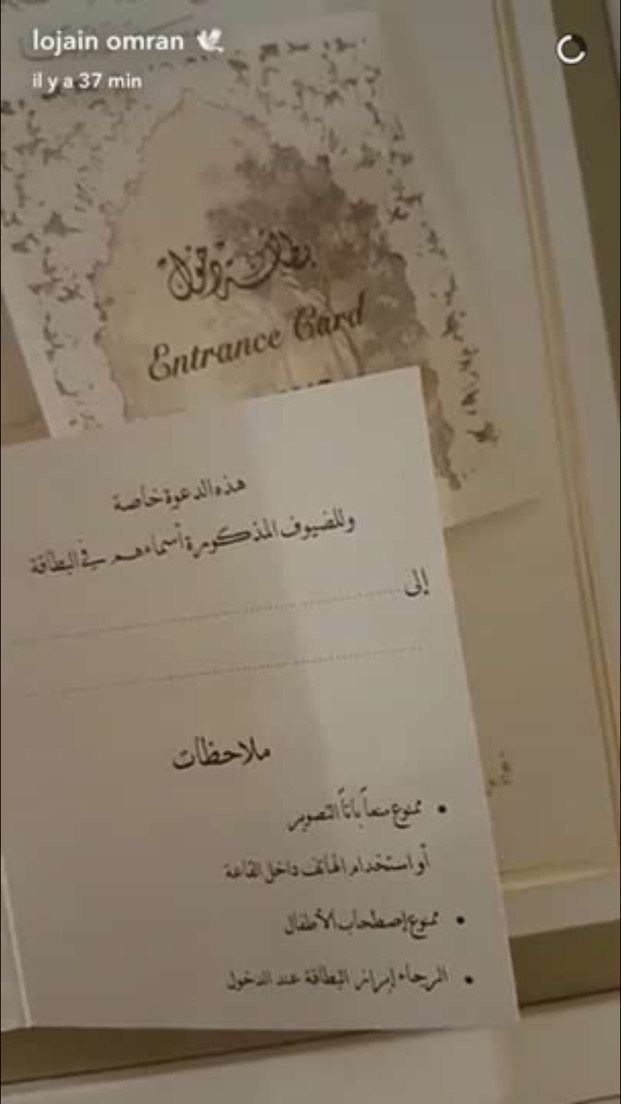 lojain omran
il y a 37 min
بطاقة دخول
Entrance Card
هذه الدعوة خاصة
وللضيوف المذكورة أسماءهم في البطاقة
إلى
ملاحظات
• ممنوع منعاً باتاً التصوير
أو استخدام الهاتف داخل القاعة
• ممنوع إصطحاب الأطفال
• الرجاء إبراز البطاقة عند الدخول